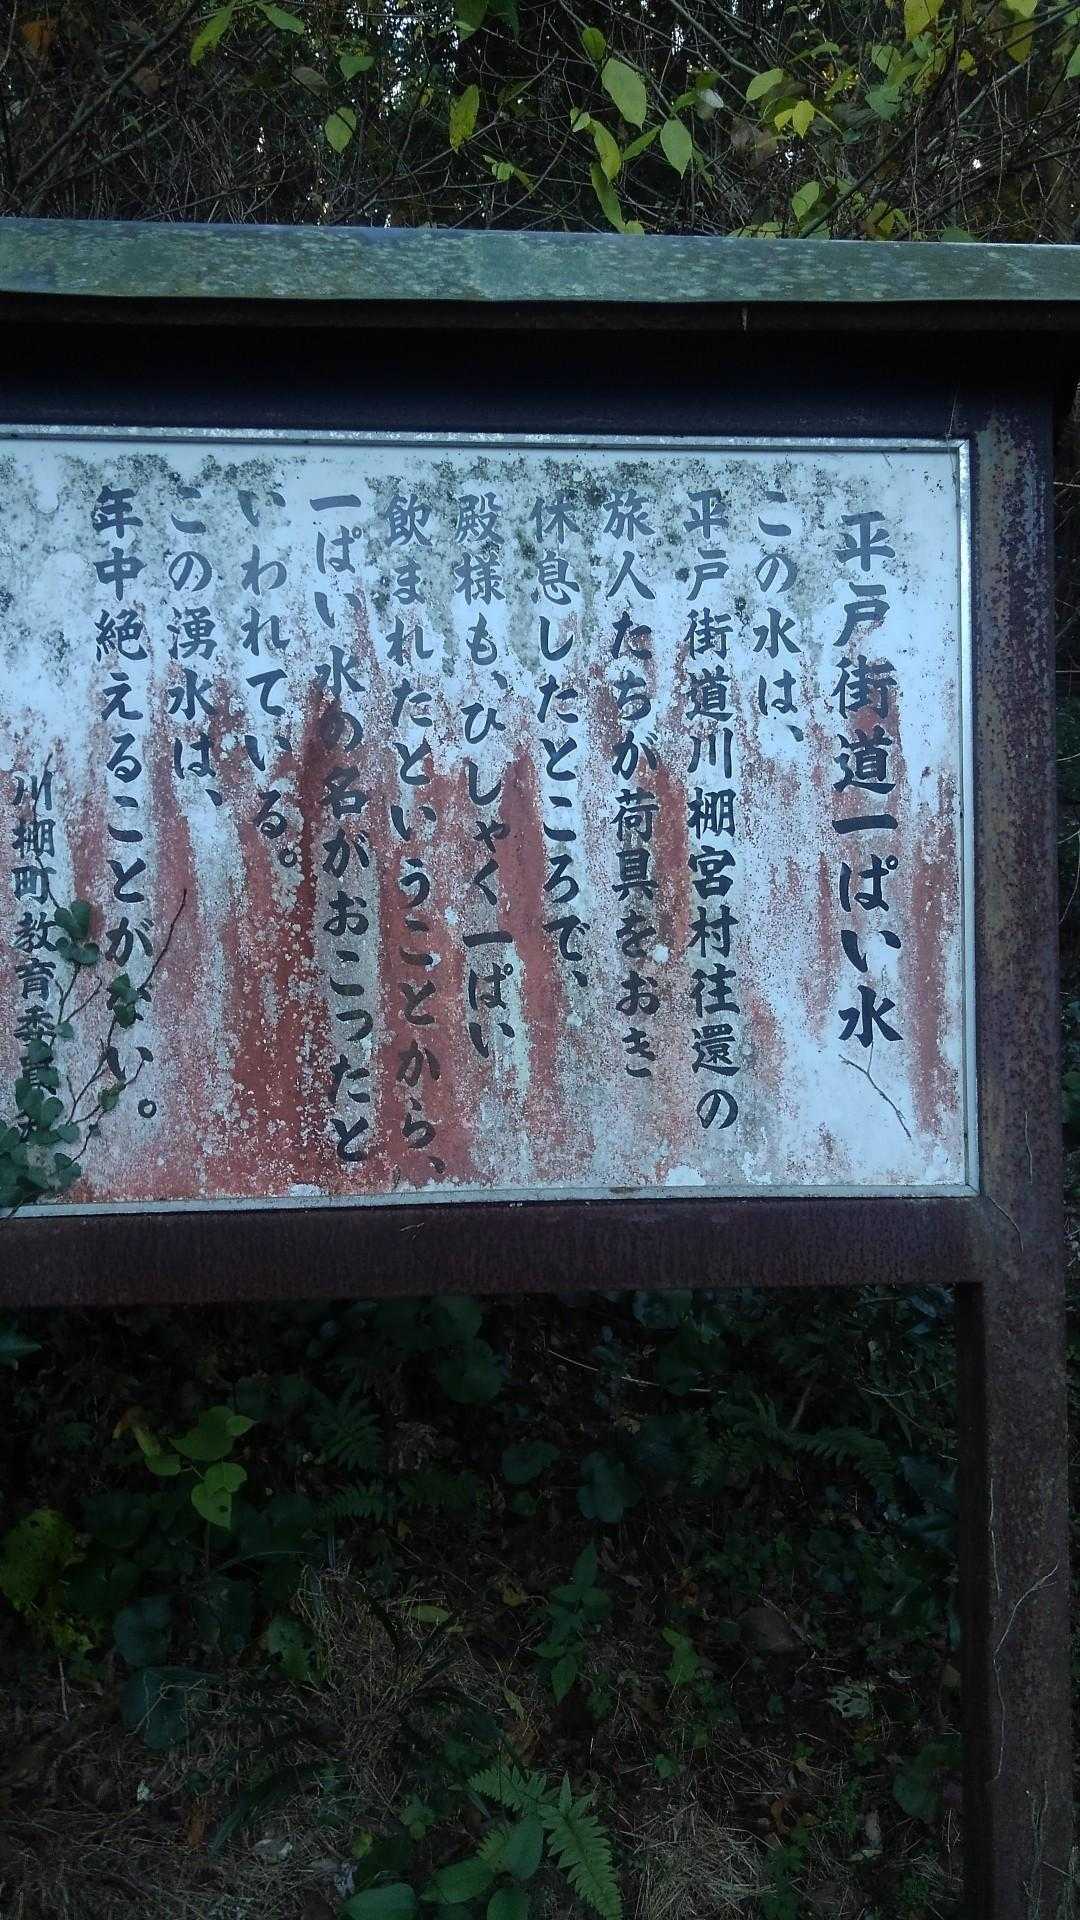 平戸街道一ぱい水
この水は、
平戸街道川棚宮村往還の
旅人たちが荷具をおき
休息したところで、
殿様も、ひしゃく一ぱい
飲まれたということから、
一ぱい水の名がおこったと
いわれている。
この湧水は、
年中絶えることがない。
川棚町教育委員